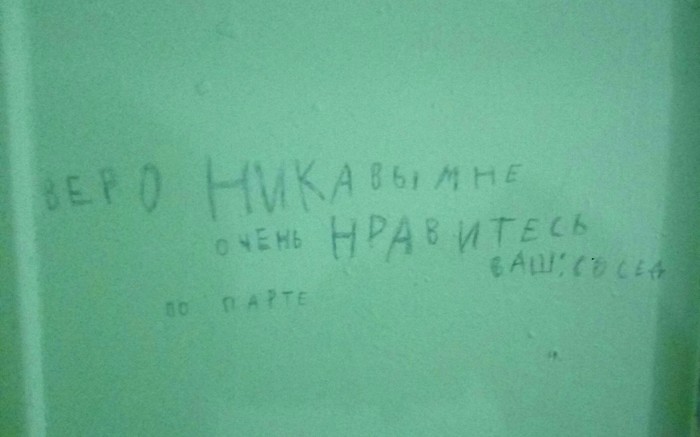 ВЕРО НИКА ВЫ МНЕ
ОЧЕНЬ НРАВИТЕСЬ
ВАШ: СОСЕД
ПО ПАРТЕ